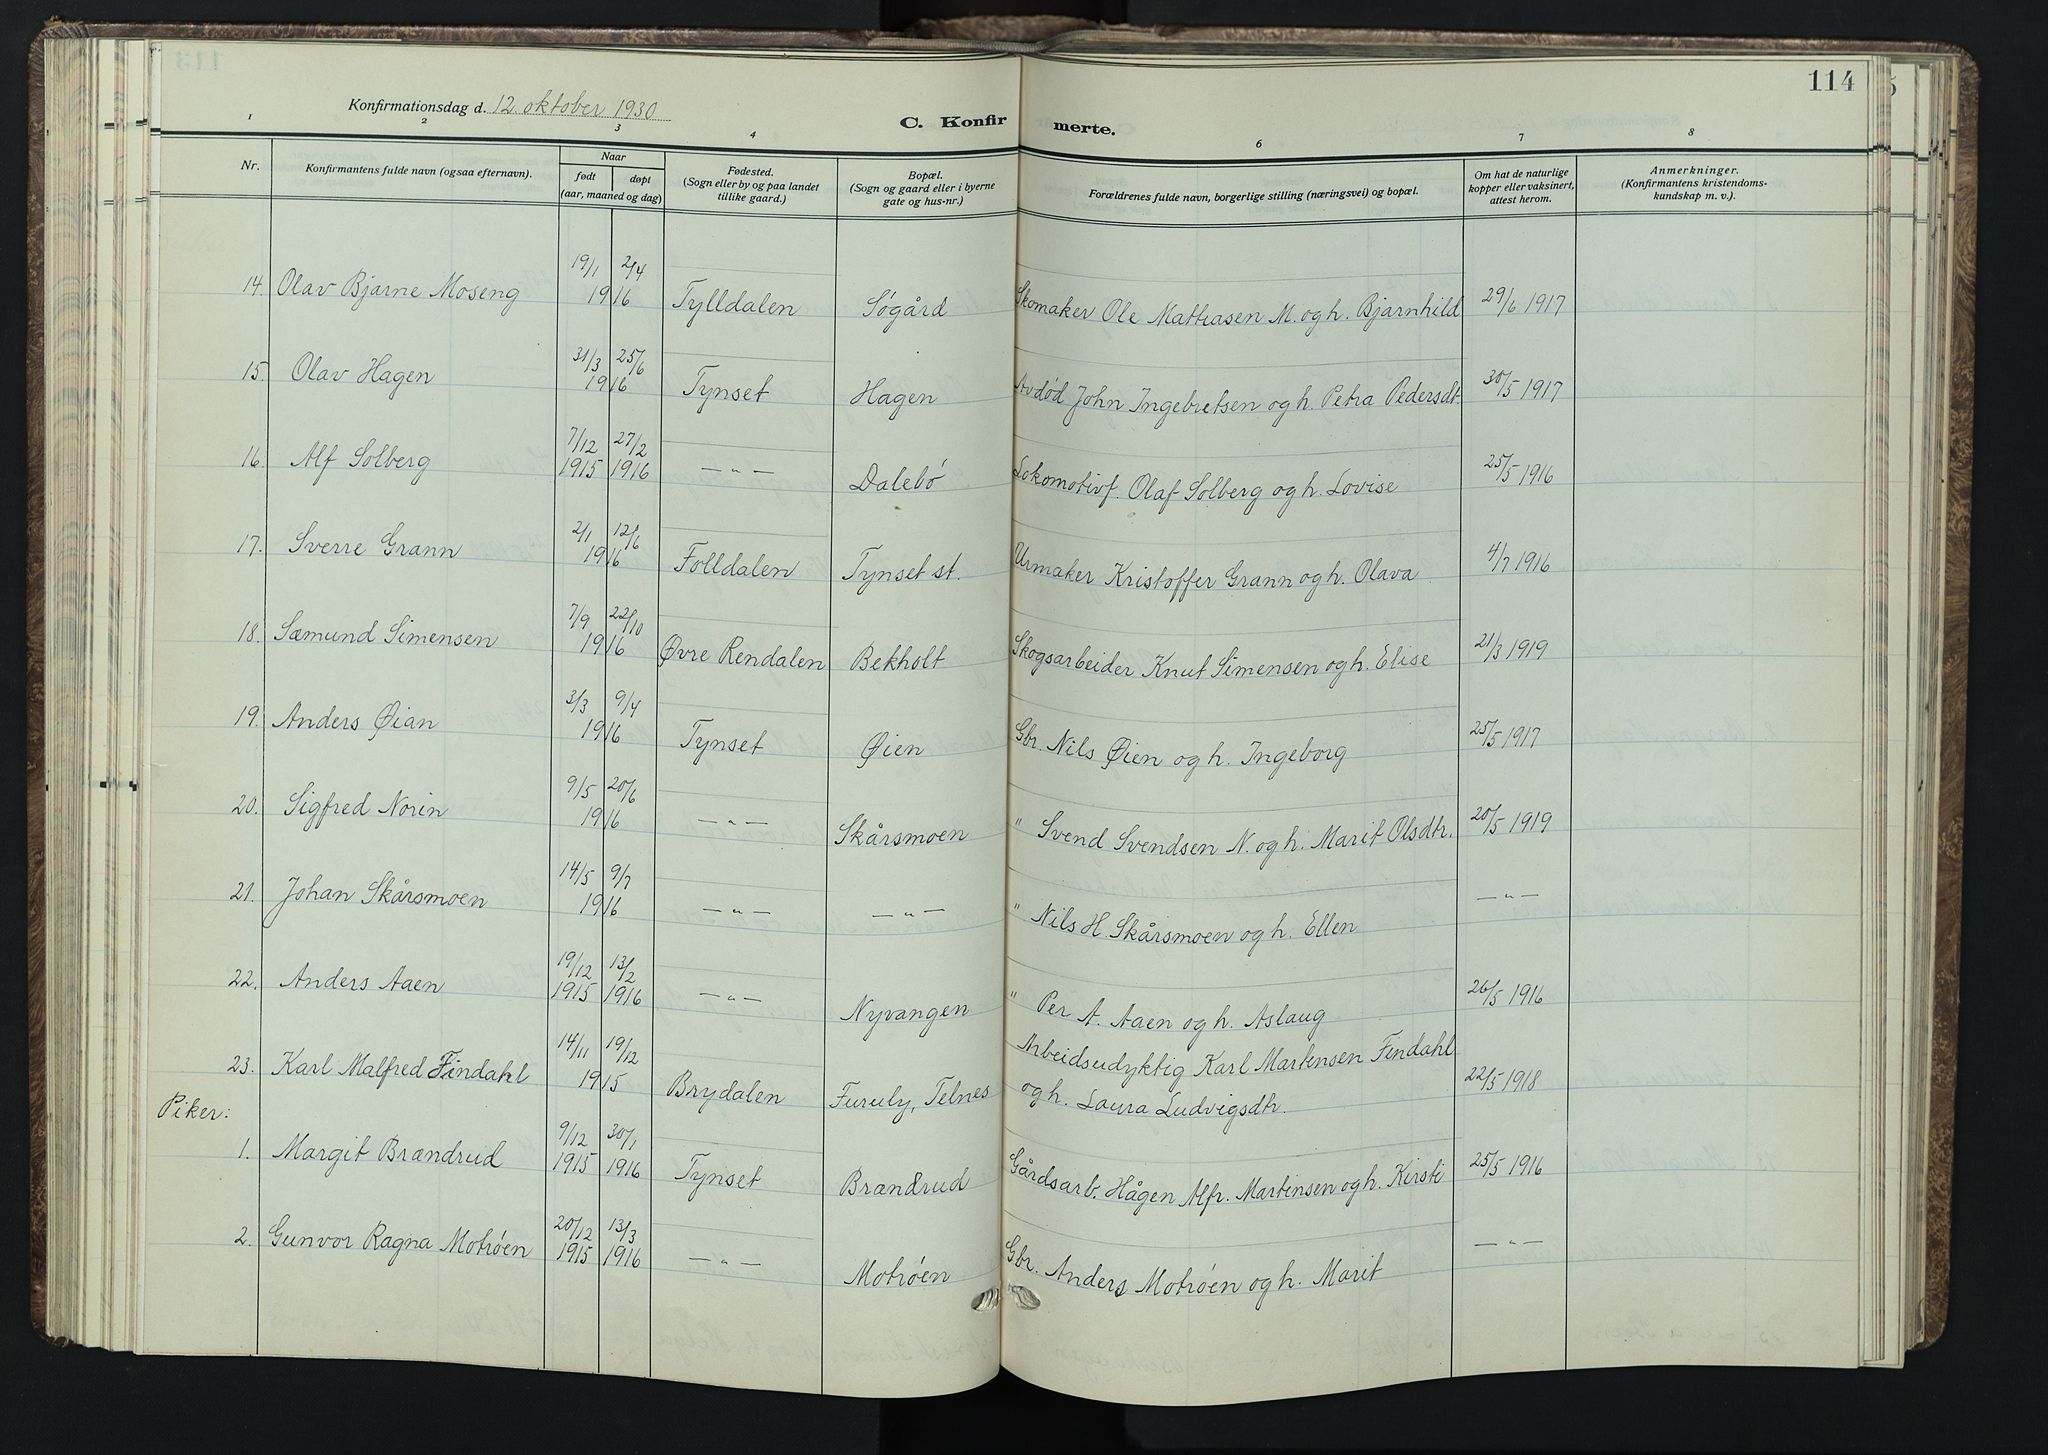 114
Konfirmationsdag d. 12. oktober 1930
C. Konfirmerte.
1 2 3 4 6 7 8
Nr. Konfirmantens fulde navn (ogsaa efternavn). Naar født døpt (aar, maaned og dag) Fødested. (Sogn eller by og paa landet tillike gaard.) Bopæl. (Sogn og gaard eller i byerne gate og hus-nr.) Forældrenes fulde navn, borgerlige stilling (næringsvei) og bopæl. Om hat de naturlige kopper eller vaksinert, attest herom. Anmerkninger. (Konfirmantens kristendoms-kundskap m. v.).
14. Olav Bjarne Moseng 19/1 2/4 1916 Tylldalen Søgård Skomaker Ole Mathiasen M. og h. Bjarnhild 29/6 1917
15. Olav Hagen 31/3 25/6 1916 Tynset Hagen Avdød John Ingebretsen og h. Petra Pedersdt. 30/5 1917
16. Alf Solberg 7/12 1915 27/2 1916 — " — Dalebö Lokomotivf. Olaf Solberg og h. Lovise 25/5 1916
17. Sverre Grann 2/1 12/6 1916 Folldalen Tynset st. Urmaker Kristoffer Grann og h. Olava 4/7 1916
18. Sæmund Simensen 7/9 22/10 1916 Øvre Rendalen Bekholt Skogsarbeider Knut Simensen og h. Elise 21/3 1919
19. Anders Øian 3/3 9/4 1916 Tynset Øien Gbr. Nils Øien og h. Ingeborg 25/5 1917
20. Sigfred Norin 9/5 20/6 1916 — " — Skårsmoen " Svend Svendsen N. og h. Marit Olsdtr. 20/5 1919
21. Johan Skårsmoen 14/5 9/7 1916 — " — — " — " Nils H Skårsmoen og h. Ellen — " —
22. Anders Aaen 19/12 1915 13/2 1916 — " — Nyvangen " Per A. Aaen og h. Aslaug 26/5 1916
23. Karl Malfred Findahl 14/11 19/12 1915 Brydalen Furuly, Telnes Arbeidsudyktig Karl Martinsen Findahl og h. Laura Ludvigsdtr. 22/5 1918
Piker:
1. Margit Brændrud 9/12 1915 30/1 1916 Tynset Brændrud Gårdsarb. Hågen Alfr. Martinsen og h. Kirsti 25/5 1916
2. Gunvor Ragna Motröen 20/12 1915 13/3 1916 — " — Motröen Gbr. Anders Motröen og h. Marit — " —